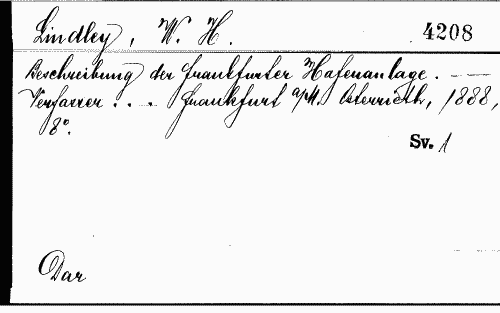 Lindley, W. H. 4208
Beschreibung der Frankfurter Hafenanlage. —
Verfasser . . . Frankfurt a/M. Osterrieth, 1888,
8°.
Sv. 1
Dar